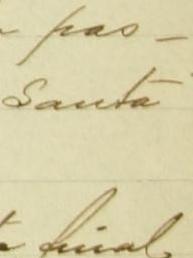 pas-
Santa
final